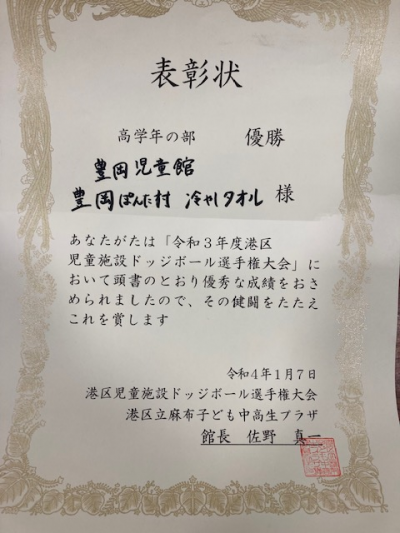 表彰状
高学年の部 優勝
豊岡児童館
豊岡ぽんた村 冷やしタオル 様
あなたがたは「令和3年度港区
児童施設ドッジボール選手権大会」に
おいて頭書のとおり優秀な成績をおさ
められましたので、その健闘をたたえ
これを賞します
令和4年1月7日
港区児童施設ドッジボール選手権大会
港区立麻布子ども中高生プラザ
館長 佐野 真一